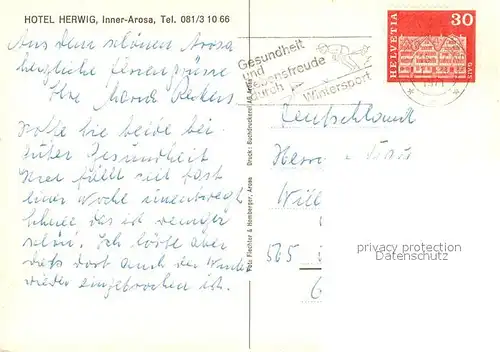 HOTEL HERWIG, Inner-Arosa, Tel. 081/3 10 66
Aus dem schönen Arosa
herzliche Feriengrüsse
Ihre Maria
Hoffe Sie beide bei
guter Gesundheit
Hier fällt seit fast
einer Woche unentwegt
Schnee das ist weniger
schön. Ich hörte aber
daß dort auch der Winter
wieder eingebrochen ist.
Druck: Buchdruckerei AG Arosa
Foto Fischter & Homberger, Arosa
Gesundheit
und
Lebensfreude
durch
Wintersport
HELVETIA
30
Deutschland
Herrn u. Frau
Will
565
privacy protection
Datenschutz